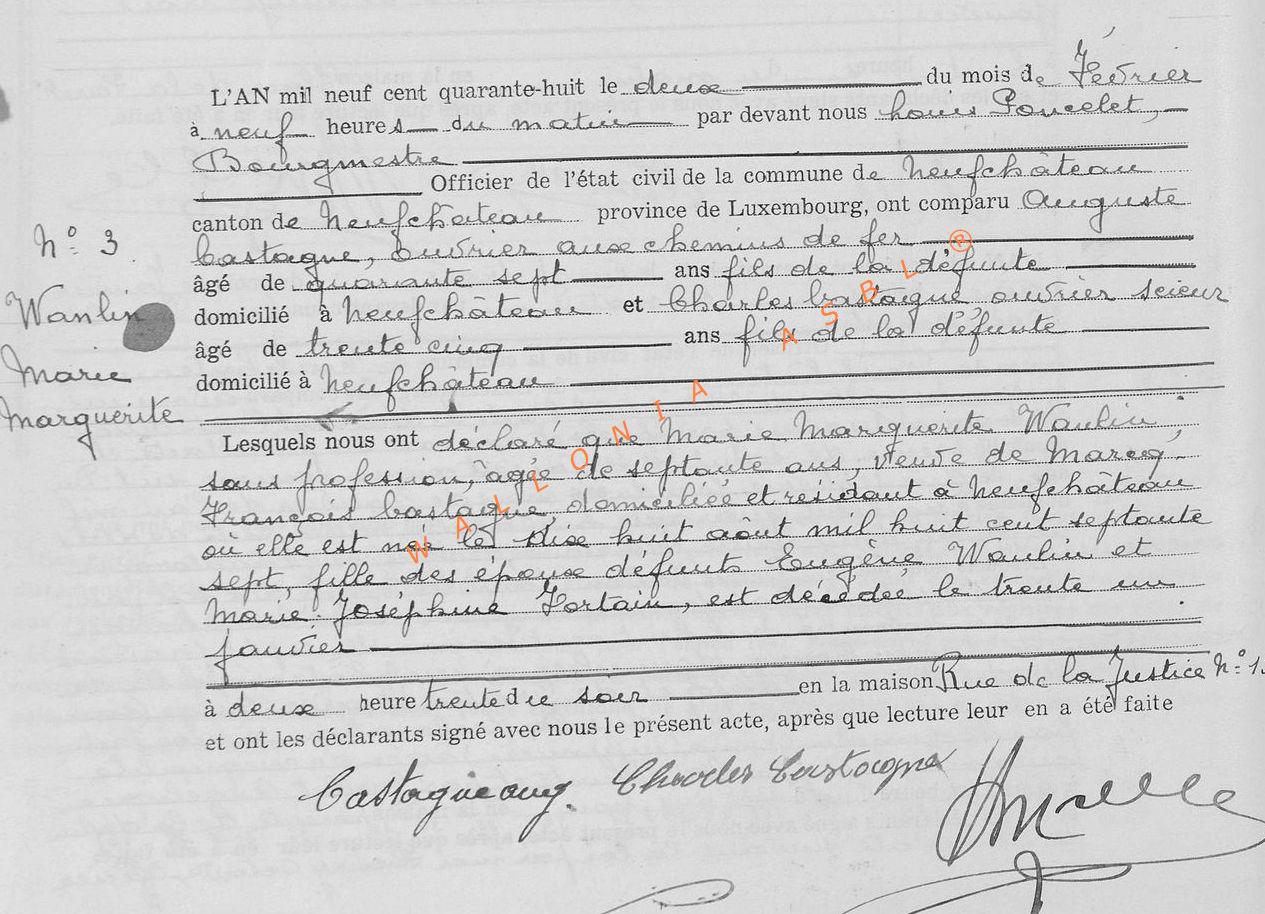 L'AN mil neuf cent quarante-huit le deux du mois de Février
à neuf heures du matin par devant nous Louis Poncelet,
Bourgmestre
Officier de l'état civil de la commune de Neufchâteau
canton de Neufchâteau province de Luxembourg, ont comparu Auguste
Castagne, ouvrier aux chemins de fer
âgé de quarante sept ans fils de la défunte
domicilié à Neufchâteau et Charles Castagne ouvrier scieur
âgé de trente cinq ans fils de la défunte
domicilié à Neufchâteau
N° 3
Wanlin
Marie
Marguerite
Lesquels nous ont déclaré que Marie Marguerite Wanlin,
sans profession, âgée de septante ans, veuve de Marcq
François Castagne, domiciliée et résidant à Neufchâteau
où elle est née le dix huit août mil huit cent septante
sept, fille des époux défunts Eugène Wanlin et
Marie Joséphine Fortain, est décédée le trente un
janvier
à deux heure trente du soir en la maison Rue de la Justice N° 1.
et ont les déclarants signé avec nous le présent acte, après que lecture leur en a été faite
Castagne aug. Charles Castagne
WALLONIA ASBL ®